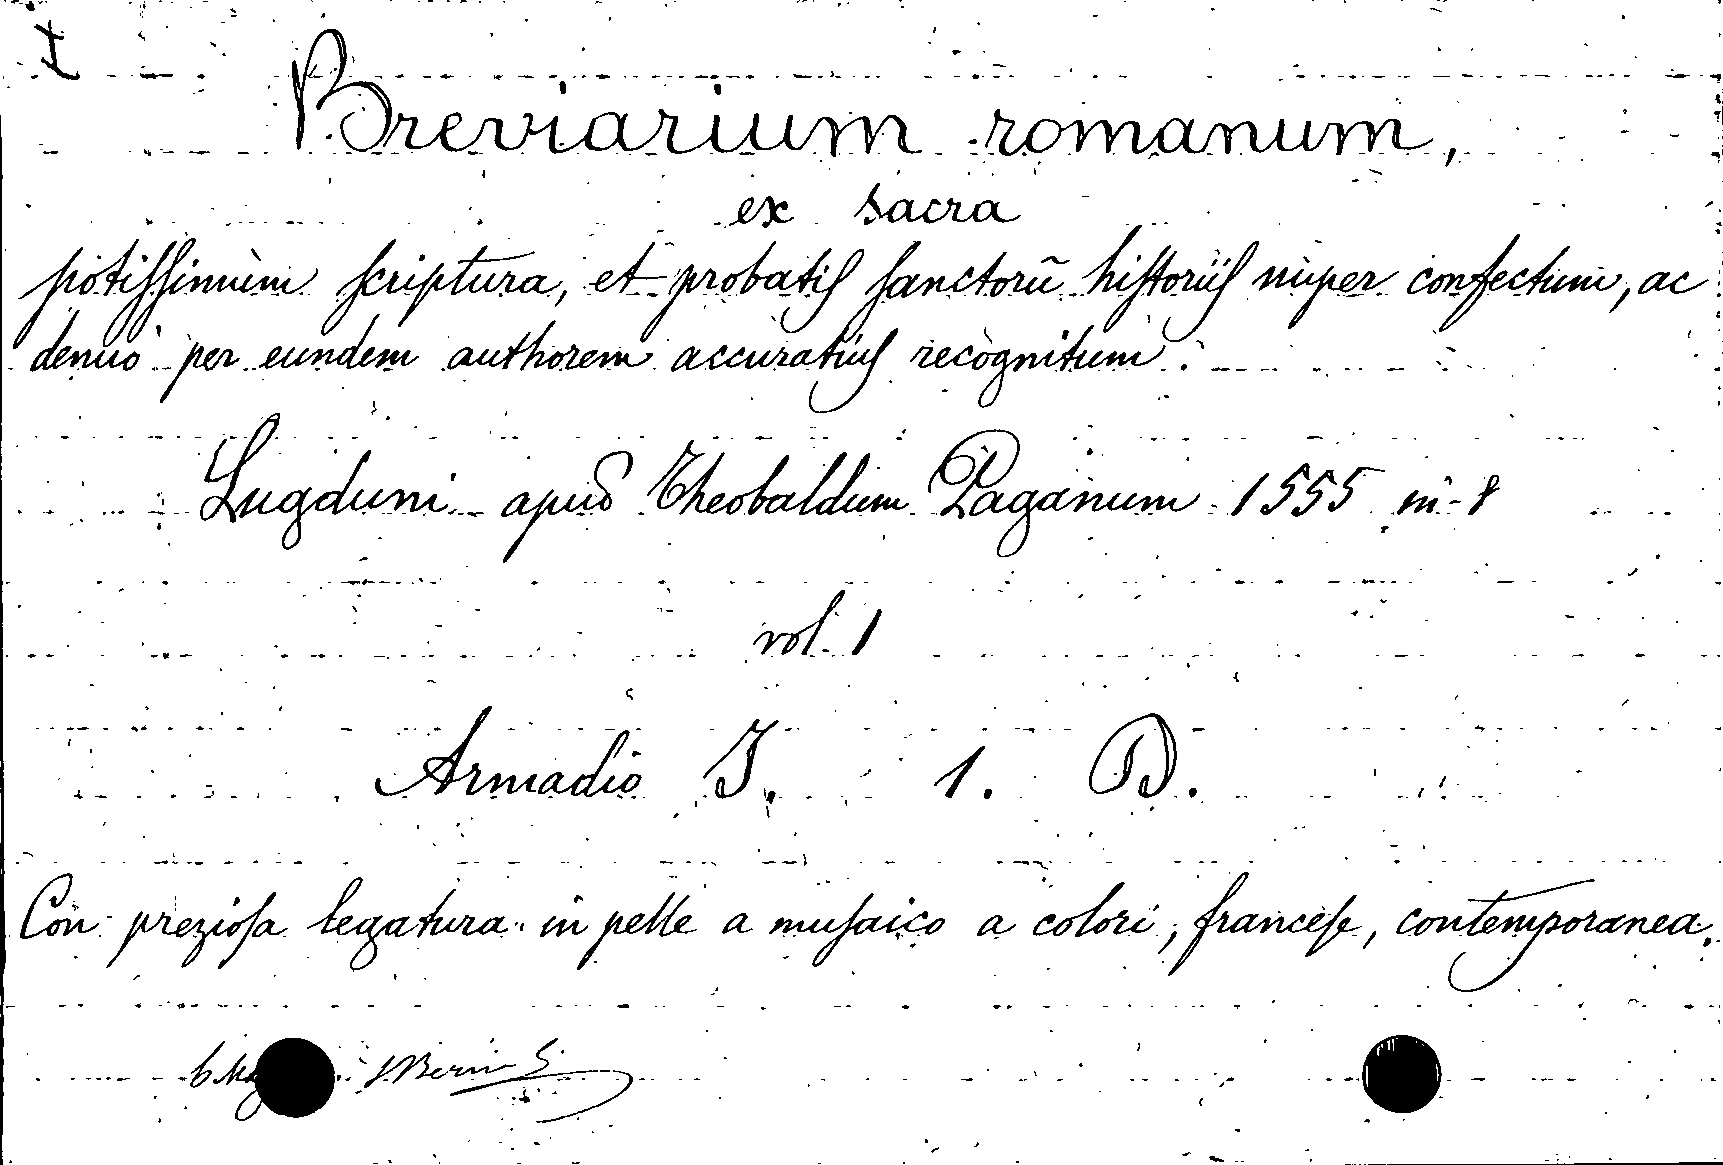 Breviarium romanum,
ex sacra
potiſſimùm ſcriptura, et probatiſ ſanctorū hiſtoriiſ nuper confectum, ac
denuò per eundem authorem accuratiuſ recògnitum.
Lugduni apud Theobaldum Paganum 1555 in-8
vol. 1
Armadio I. 1. D.
Con prezioſa legatura in pelle a muſaico a colori, franceſe, contemporanea.